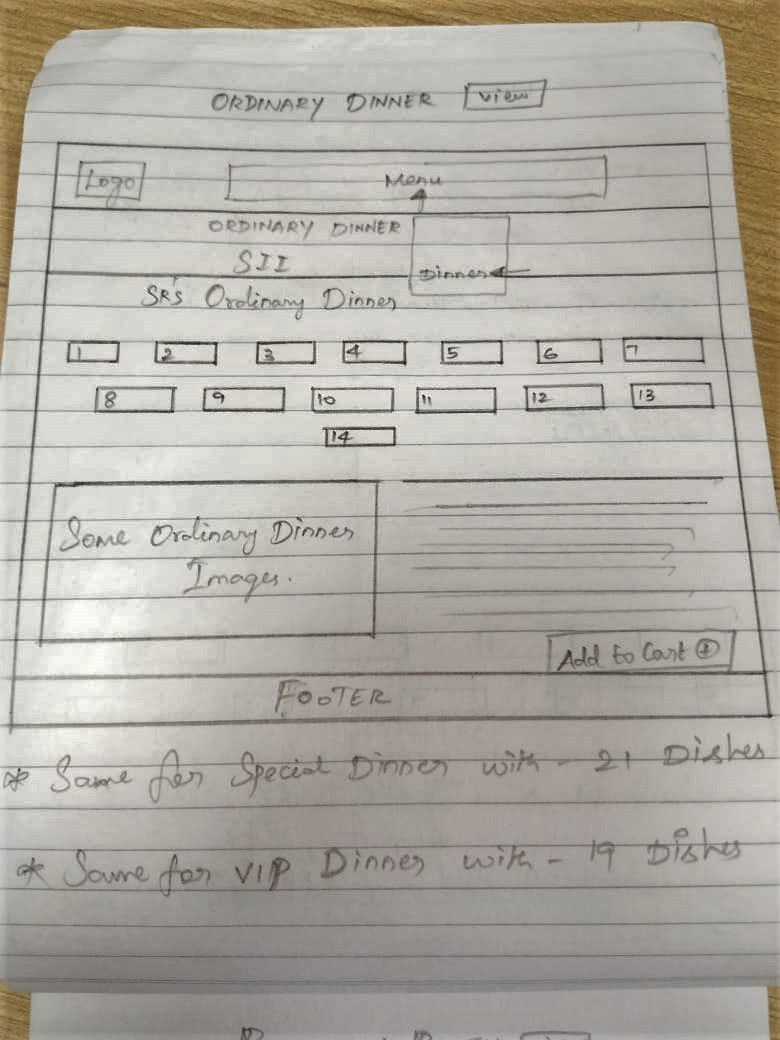 ORDINARY DINNER view
Logo
Menu
ORDINARY DINNER
SII
Dinner
SR'S Ordinary Dinner
1 2 3 4 5 6 7
8 9 10 11 12 13
14
Some Ordinary Dinner
Images.
Add to Cart +
FOOTER
* Same for Special Dinner with - 21 Dishes
* Same for VIP Dinner with - 19 Dishes